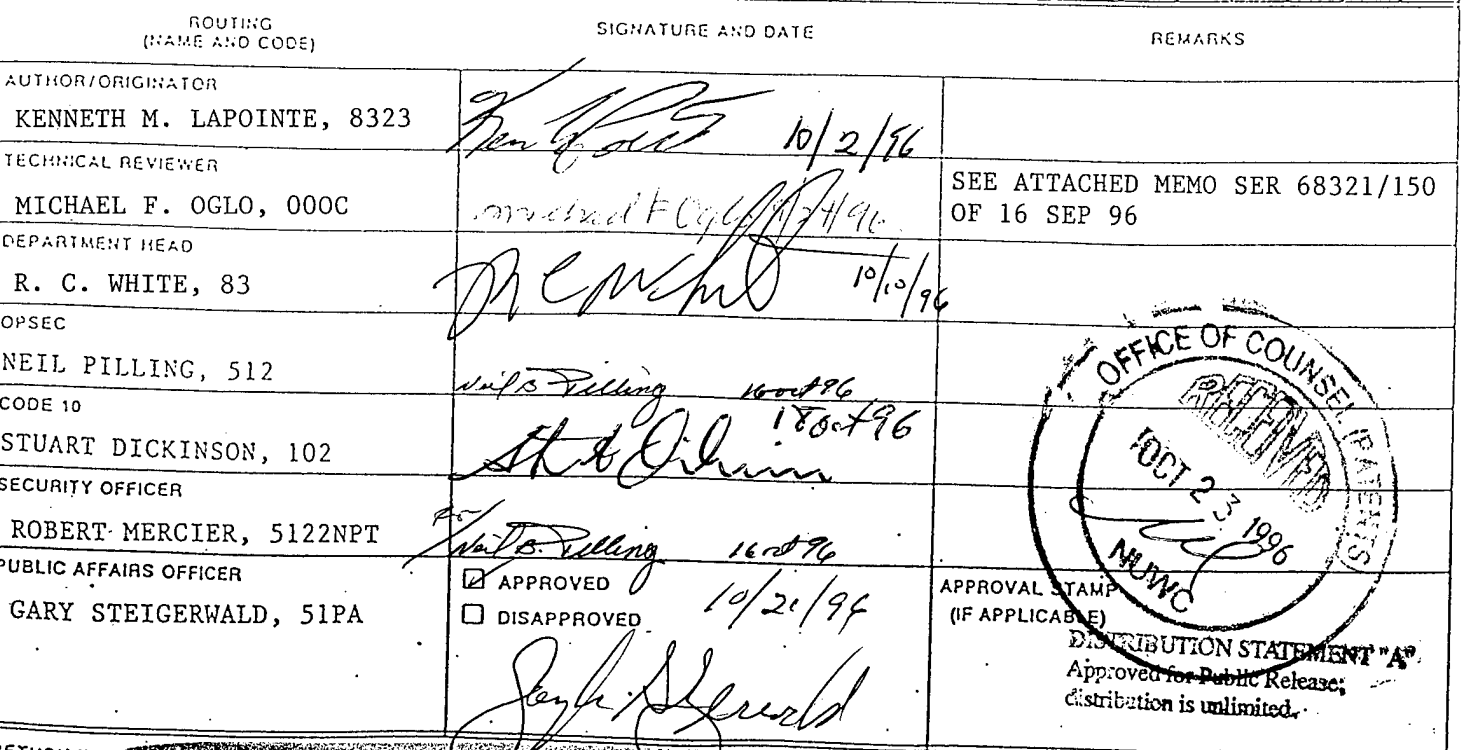 ROUTING
(NAME AND CODE)
SIGNATURE AND DATE
REMARKS
AUTHOR/ORIGINATOR
KENNETH M. LAPOINTE, 8323
10/2/96
TECHNICAL REVIEWER
MICHAEL F. OGLO, 000C
SEE ATTACHED MEMO SER 68321/150
OF 16 SEP 96
DEPARTMENT HEAD
R. C. WHITE, 83
10/10/96
OPSEC
NEIL PILLING, 512
Neil B. Pilling 16 oct 96
CODE 10
STUART DICKINSON, 102
18 Oct 96
SECURITY OFFICER
ROBERT MERCIER, 5122NPT
for Neil B. Pilling 16 oct 96
PUBLIC AFFAIRS OFFICER
GARY STEIGERWALD, 51PA
APPROVED
DISAPPROVED
10/21/96
APPROVAL STAMP
(IF APPLICABLE)
OFFICE OF COUNSEL (PATENTS)
RECEIVED
OCT 23 1996
NUWC
DISTRIBUTION STATEMENT "A"
Approved for Public Release;
distribution is unlimited.